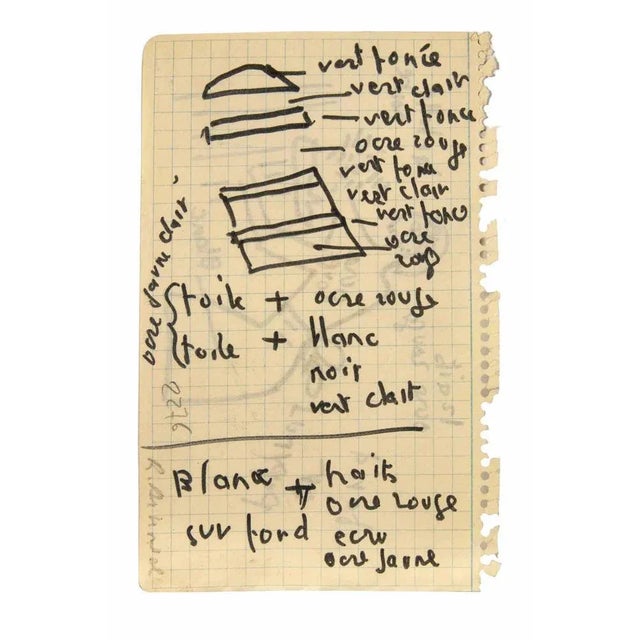 vert foncée
vert clair
vert fonce
ocre rouge
vert fonce
vert clair
vert fonce
ocre
roug
ocre jaune clair
toile + ocre rouge
toile + blanc
noir
vert clair
2276
Blanc + traits
ocre rouge
sur fond ecru
ocre jaune